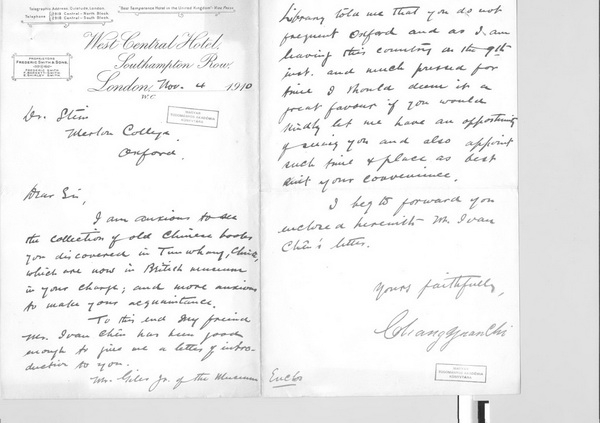 Telegraphic Address: Quietude, London.
"Best Temperance Hotel in the United Kingdom"
West Central Hotel,
Southampton Row,
London, Nov. 4 1910
W.C.
PROPRIETORS
FREDERIC SMITH & SONS.
Dr. Stein
Merton College
Oxford.
Dear Sir,
I am anxious to see
the collection of old Chinese books
you discovered in Tunwhang, China,
which are now in British museum
in your charge; and more anxious
to make your acquaintance.
To this end my friend
Mr. Ivan Chên has been good
enough to give me a letter of intro-
duction to you.
Mr. Giles Jr. of the Museum
Library told me that you do not
frequent Oxford and as I am
leaving this country on the 9th
inst. and much pressed for
time I should deem it a
great favour if you would
kindly let me have an opportunity
of seeing you and also appoint
such time & place as best
suit your convenience.
I beg to forward you
enclosed herewith Mr. Ivan
Chên's letter.
Yours faithfully,
Chang Yuan Chi
Enclos